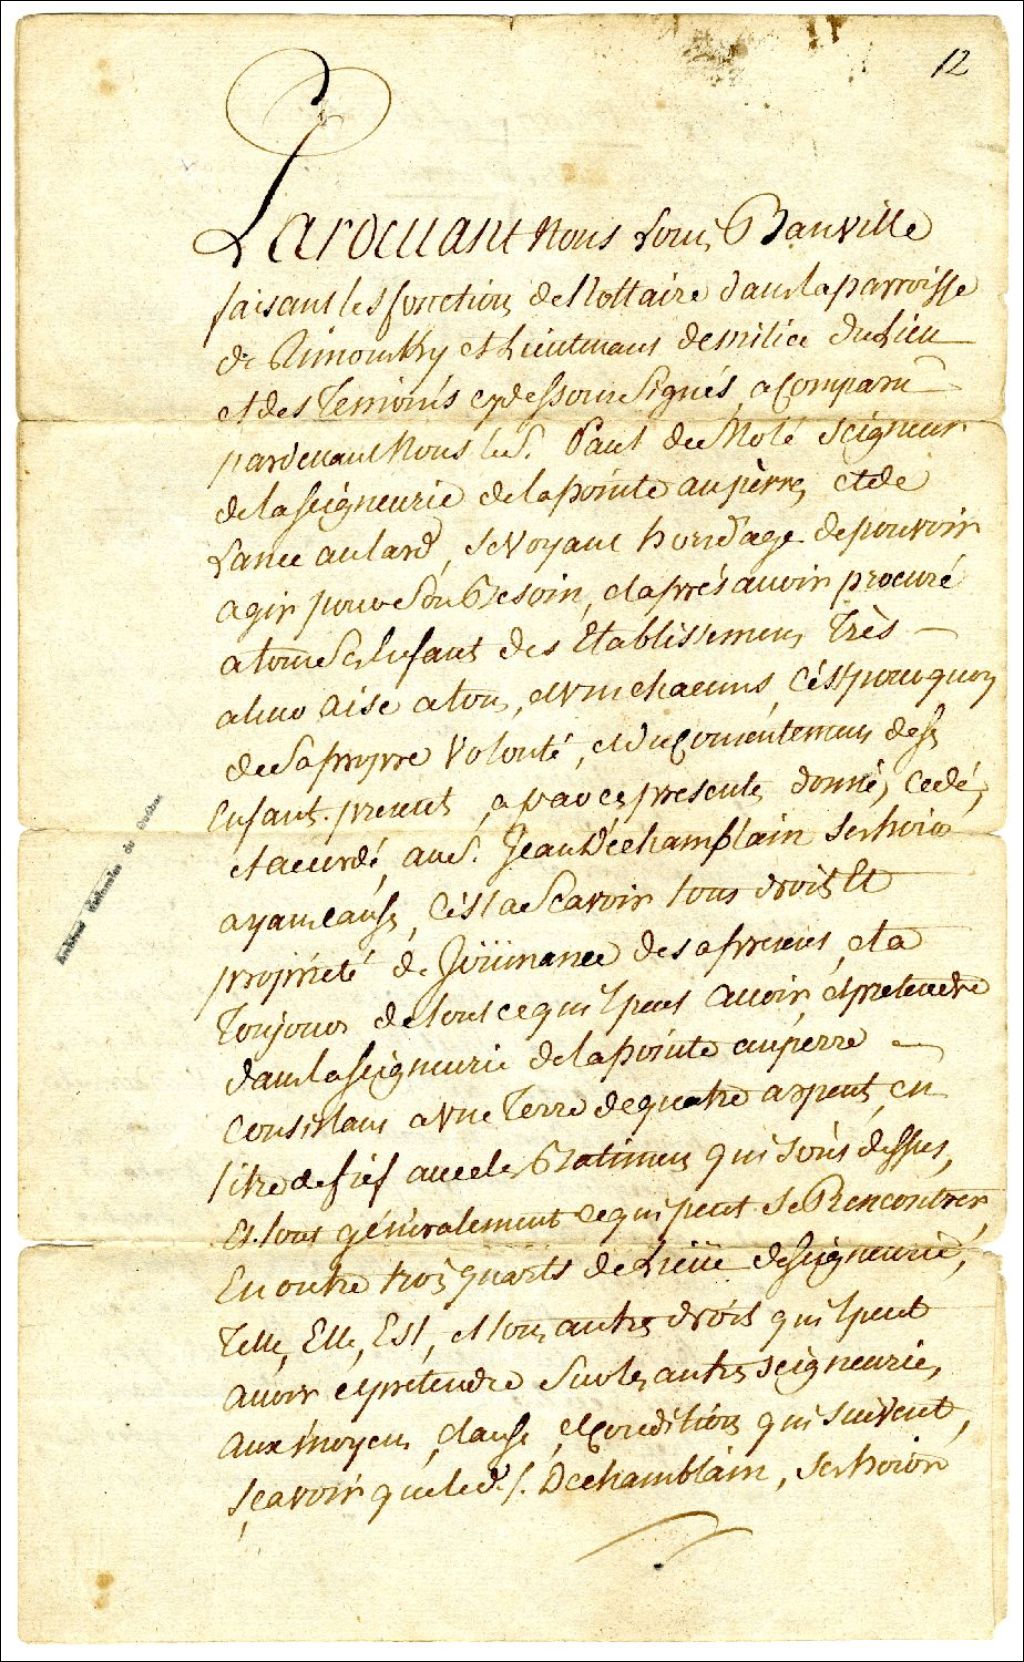 12
Pardevant Nous Louis Banville
faisant les fonction de Nottaire dans la parroisse
de Rimousky et Lieutenant de milice du Lieu
et des Temoins cy dessous Signés a Comparu
pardevant Nous le S. Paul de Molé seigneur
de la seigneurie de la pointe au pèrre, et de
Lance au lard, se Voyant hors d'age de pouvoir
agir pour son Besoin, et après avoir procuré
a tous Ses Enfant des Etablissemens Très
a leur aise a tous, et un chacuns, c'est pourquoy
de Sa propre Volonté, et du Consentement de ses
Enfant present, a par ces presentes donné, cedé,
et accordé, au S. Jean Déchamplain ses hoirs
ayant cause, C'est a Scavoir tous droits Et
propriété de Joüinance des a present, et a
Toujours de tout ce qu'il peut avoir, et pretendre
dans la seigneurie de la pointe au pèrre
Consistant a une Terre de quatre arpent, en
titre de fief avec les Batimens qui sons dessus,
Et tout généralement ce qui peut Se Rencontrer
En outre trois quarts de Lieüe de seigneurie,
Telle, Elle, Est, et tous autres droits qu'il peut
avoir et prétendre Sur les autres seigneuries,
aux moyens, clause, et Conditions qui suivent,
Sçavoir que led. S. Dechamblain, ses hoirs
Archives Nationales de Québec